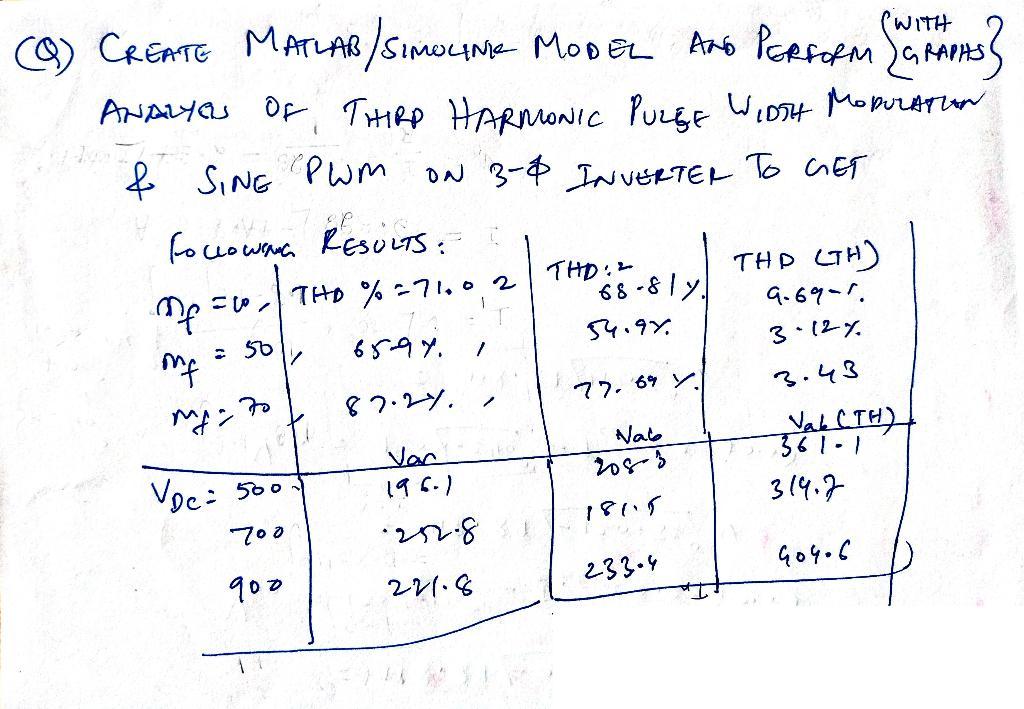 (Q) CREATE MATLAB/SIMULINK MODEL AND PERFORM {WITH GRAPHS}
ANALYSIS OF THIRD HARMONIC PULSE WIDTH MODULATION
& SINE PWM ON 3-Φ INVERTER TO GET
FOLLOWING RESULTS:
mf = 10, THD % = 71.02 THD:2 68.81%. THD (TH) 9.69%.
mf = 50, 65.9%, 54.9%. 3.12%.
mf = 70, 87.2%, 77.69%. 3.43
Van Vab Vab (TH)
VDC = 500 196.1 208.3 361.1
700 252.8 181.5 314.7
900 221.8 233.4 404.6